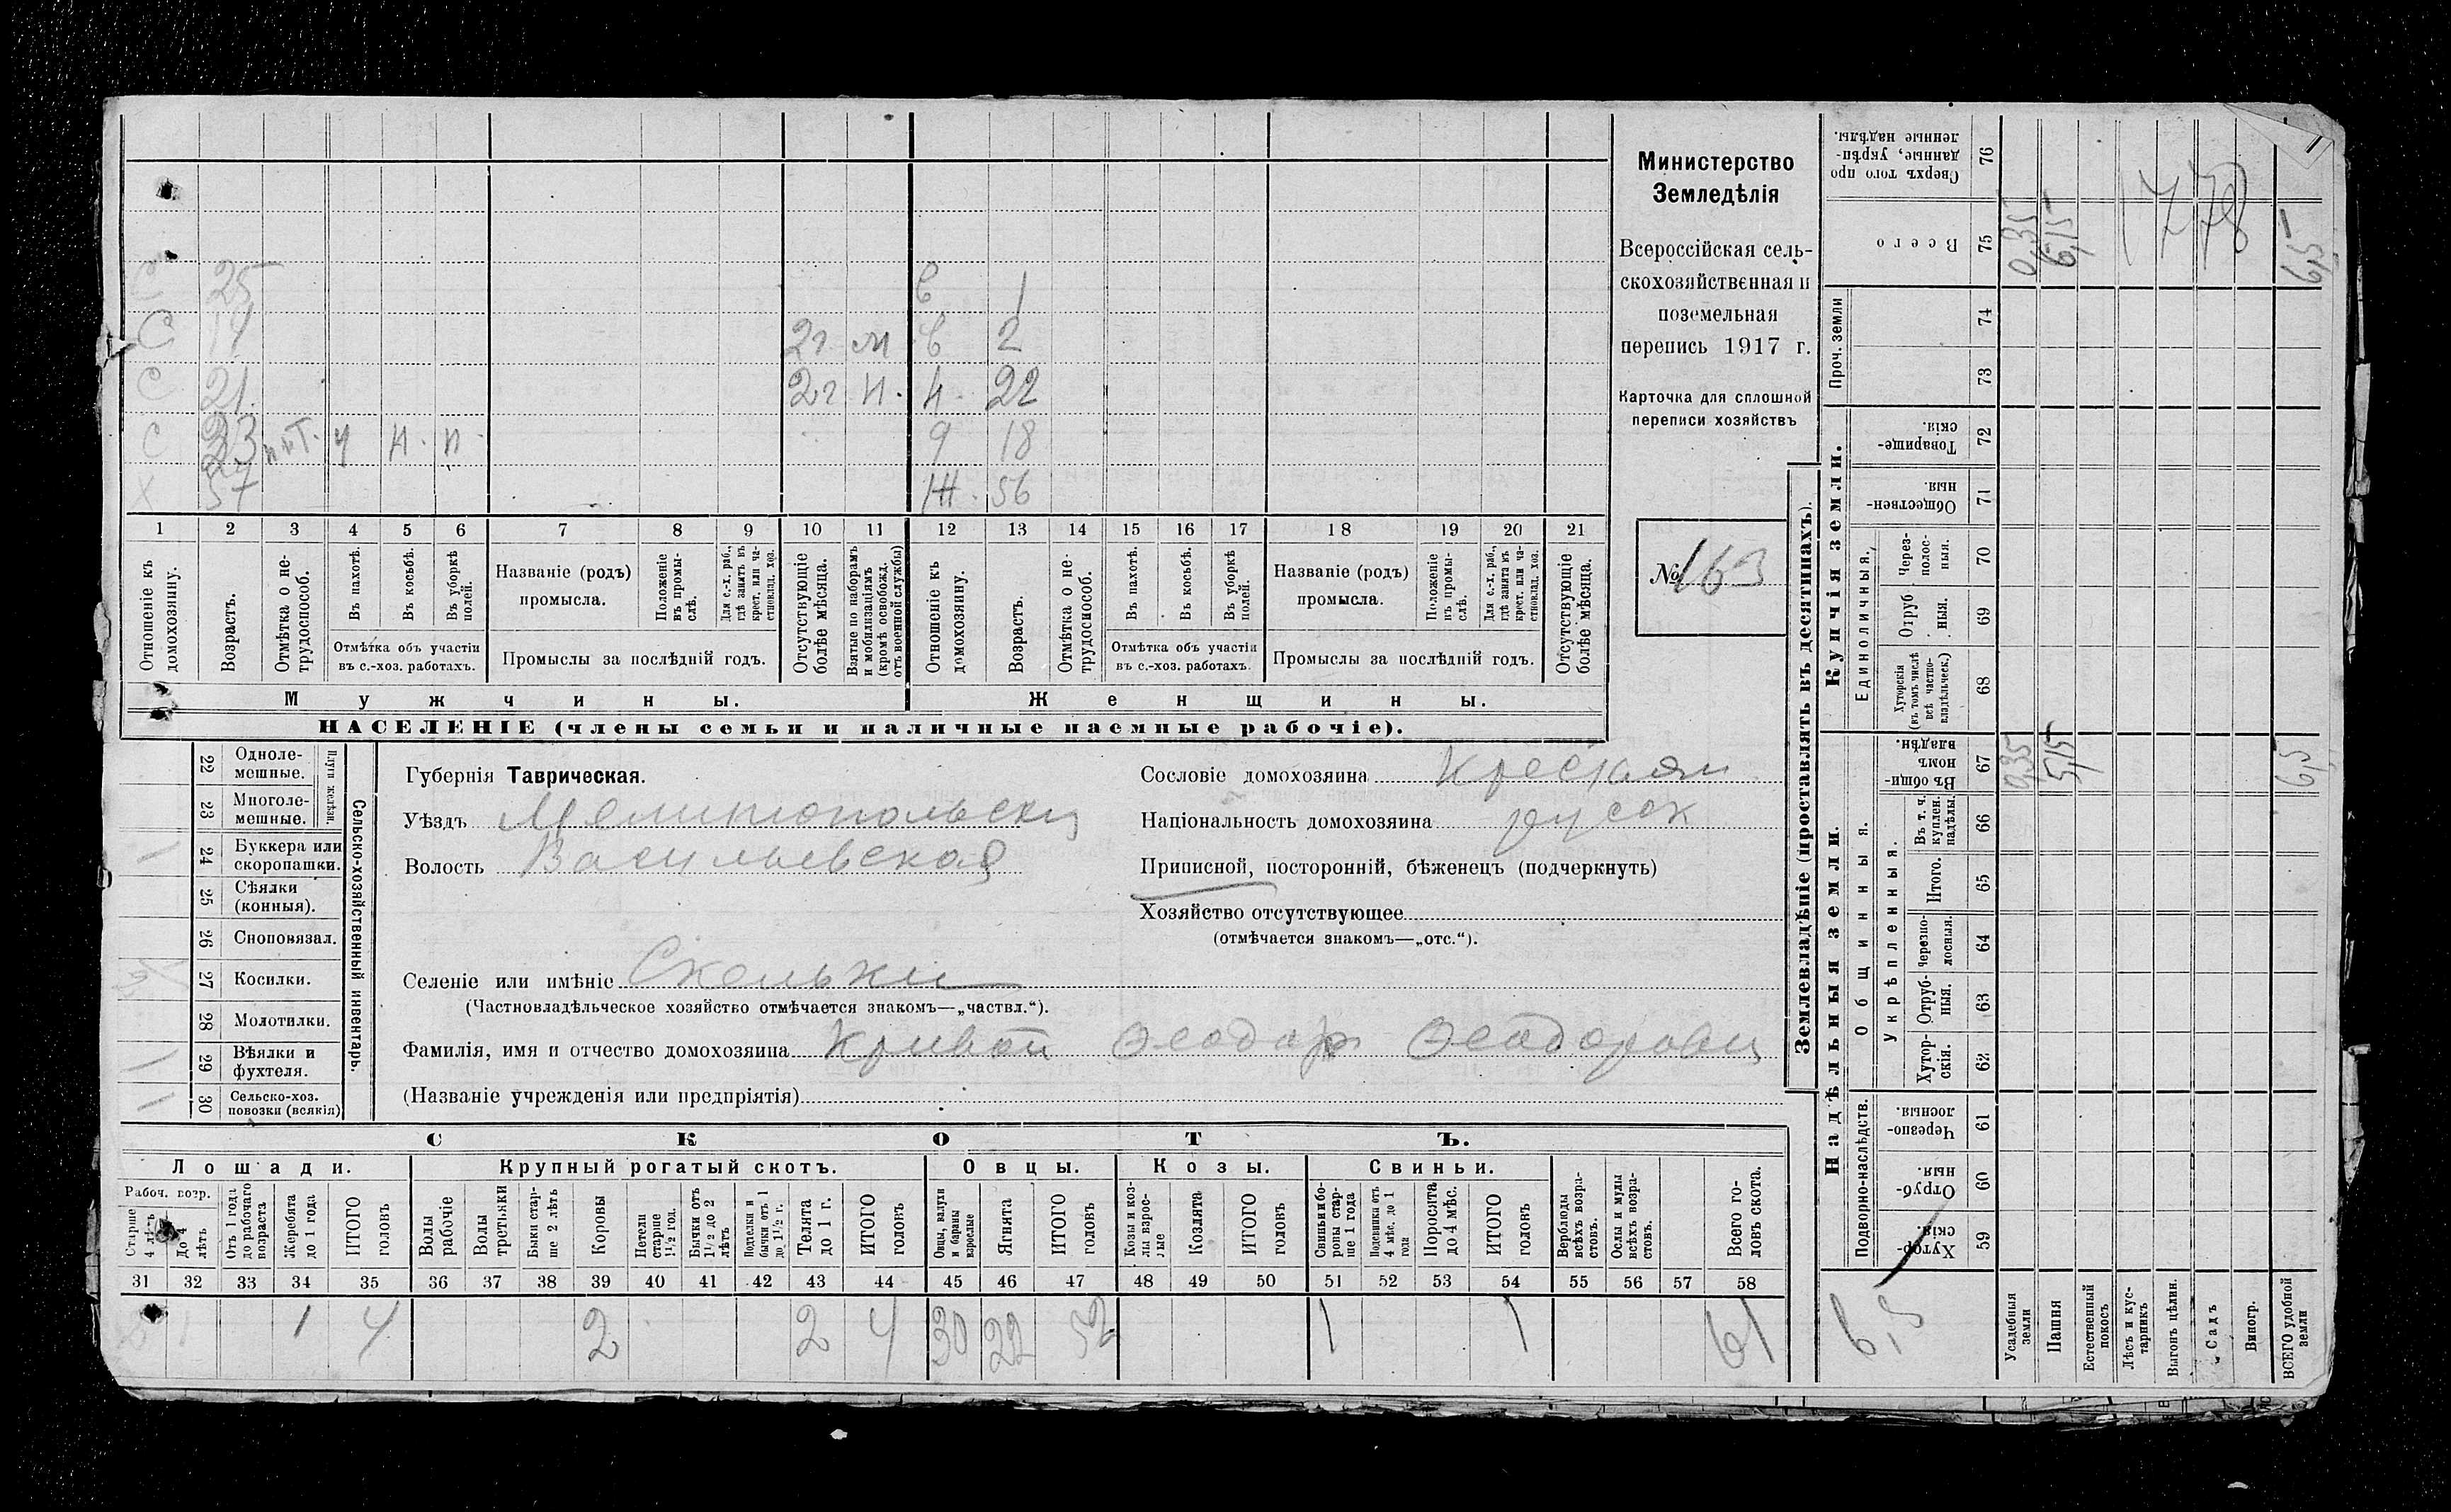 Министерство
Земледѣлія
Всероссійская сель-
скохозяйственная и
поземельная
перепись 1917 г.
Карточка для сплошной
переписи хозяйствъ
№ 163
С 25 1
С 14 2 г м 2
С 21 2 г н. 22
С 23 18
Х 57 Ж. 56
1 2 3 4 5 6 7 8 9 10 11 12 13 14 15 16 17 18 19 20 21
Отношеніе къ домохозяину.
Возрастъ.
Отмѣтка о не-трудоспособ.
Въ пахотѣ.
Въ косьбѣ.
Въ уборкѣ полей.
Отмѣтка объ участіи въ с.-хоз. работахъ.
Названіе (родъ) промысла.
Положеніе въ промы-слѣ.
Для с.-х. раб., гдѣ занятъ въ крест. или ча-стновлад. хоз.
Промыслы за послѣдній годъ.
Отсутствующіе болѣе мѣсяца.
Взятые по наборамъ и мобилизаціямъ (кромѣ освобожд. отъ военной службы)
Отношеніе къ домохозяину.
Возрастъ.
Отмѣтка о не-трудоспособ.
Въ пахотѣ.
Въ косьбѣ.
Въ уборкѣ полей.
Отмѣтка объ участіи въ с.-хоз. работахъ.
Названіе (родъ) промысла.
Положеніе въ промы-слѣ.
Для с.-х. раб., гдѣ занята въ крест. или ча-стновлад. хоз.
Промыслы за послѣдній годъ.
Отсутствующіе болѣе мѣсяца.
Мужчины. Женщины.
НАСЕЛЕНІЕ (члены семьи и наличные наемные рабочіе).
Сельско-хозяйственный инвентарь.
Плуги желѣзн.
22 Одноле-мешные.
23 Многоле-мешные.
24 Буккера или скоропашки.
25 Сѣялки (конныя).
26 Сноповязал.
27 Косилки.
28 Молотилки.
29 Вѣялки и фухтеля.
30 Сельско-хоз. повозки (всякія)
Губернія Таврическая.
Уѣздъ Мелитопольский
Волость Васильевская
Селеніе или имѣніе Скельки
(Частновладѣльческое хозяйство отмѣчается знакомъ—„частвл.“).
Фамилія, имя и отчество домохозяина Кривой Ѳеодор Ѳеодорович
(Названіе учрежденія или предпріятія)
Сословіе домохозяина Крестьян
Національность домохозяина русск
Приписной, посторонній, бѣженецъ (подчеркнуть)
Хозяйство отсутствующее
(отмѣчается знакомъ—„отс.“).
СКОТЪ.
Лошади. Крупный рогатый скотъ. Овцы. Козы. Свиньи.
Рабоч. возр.
Старше 4 лѣтъ
До 4 лѣтъ
Отъ 1 года до рабочаго возраста
Жеребята до 1 года
ИТОГО головъ
Волы рабочіе
Волы третьяки
Быки стар-ше 2 лѣтъ
Коровы
Нетели старше 1½ год.
Бычки отъ 1½ до 2 лѣтъ
Подтелки и бычки отъ 1 до 1½ г.
Телята до 1 г.
ИТОГО головъ
Овцы, валухи и бараны взрослые
Ягнята
ИТОГО головъ
Козы и коз-лы взрос-лые
Козлята
ИТОГО головъ
Свиньи и бо-ровы стар-ше 1 года
Подсвинки отъ 4 мѣс. до 1 года
Поросята до 4 мѣс.
ИТОГО головъ
Верблюды всѣхъ возра-стовъ.
Ослы и мулы всѣхъ возра-стовъ.
Всего го-ловъ скота.
31 32 33 34 35 36 37 38 39 40 41 42 43 44 45 46 47 48 49 50 51 52 53 54 55 56 57 58
1 4 2 2 4 30 22 52 1 1 61
Землевладѣніе (проставлять въ десятинахъ).
Надѣльныя земли. Купчія земли. Проч. земли
Подворно-наслѣдств.
Общинныя.
Укрѣпленныя.
Единоличныя.
Хутор-скія. 59
Отруб-ныя. 60
Черезпо-лосныя. 61
Хутор-скія. 62
Отруб-ныя. 63
Черезпо-лосныя. 64
Итого. 65
Въ т. ч. куплен. надѣлы. 66
Въ общи-номъ владѣн. 67
Хуторскія (въ томъ числѣ всѣ частно-владѣльческ.) 68
Отруб ныя. 69
Через-полос-ныя. 70
Обществен-ныя. 71
Товарище-скія. 72
73
74
Всего 75
Сверхъ того про данные, укрѣп-ленные надѣлы. 76
Усадебныя земли 0,35 0,35
Пашня 5,15 6,15
Естественный покосъ
Лѣсъ и кус-тарникъ
Выгонъ цѣлин.
Садъ
Виногр.
ВСЕГО удобной земли 6,5 6,5
6,5
1778